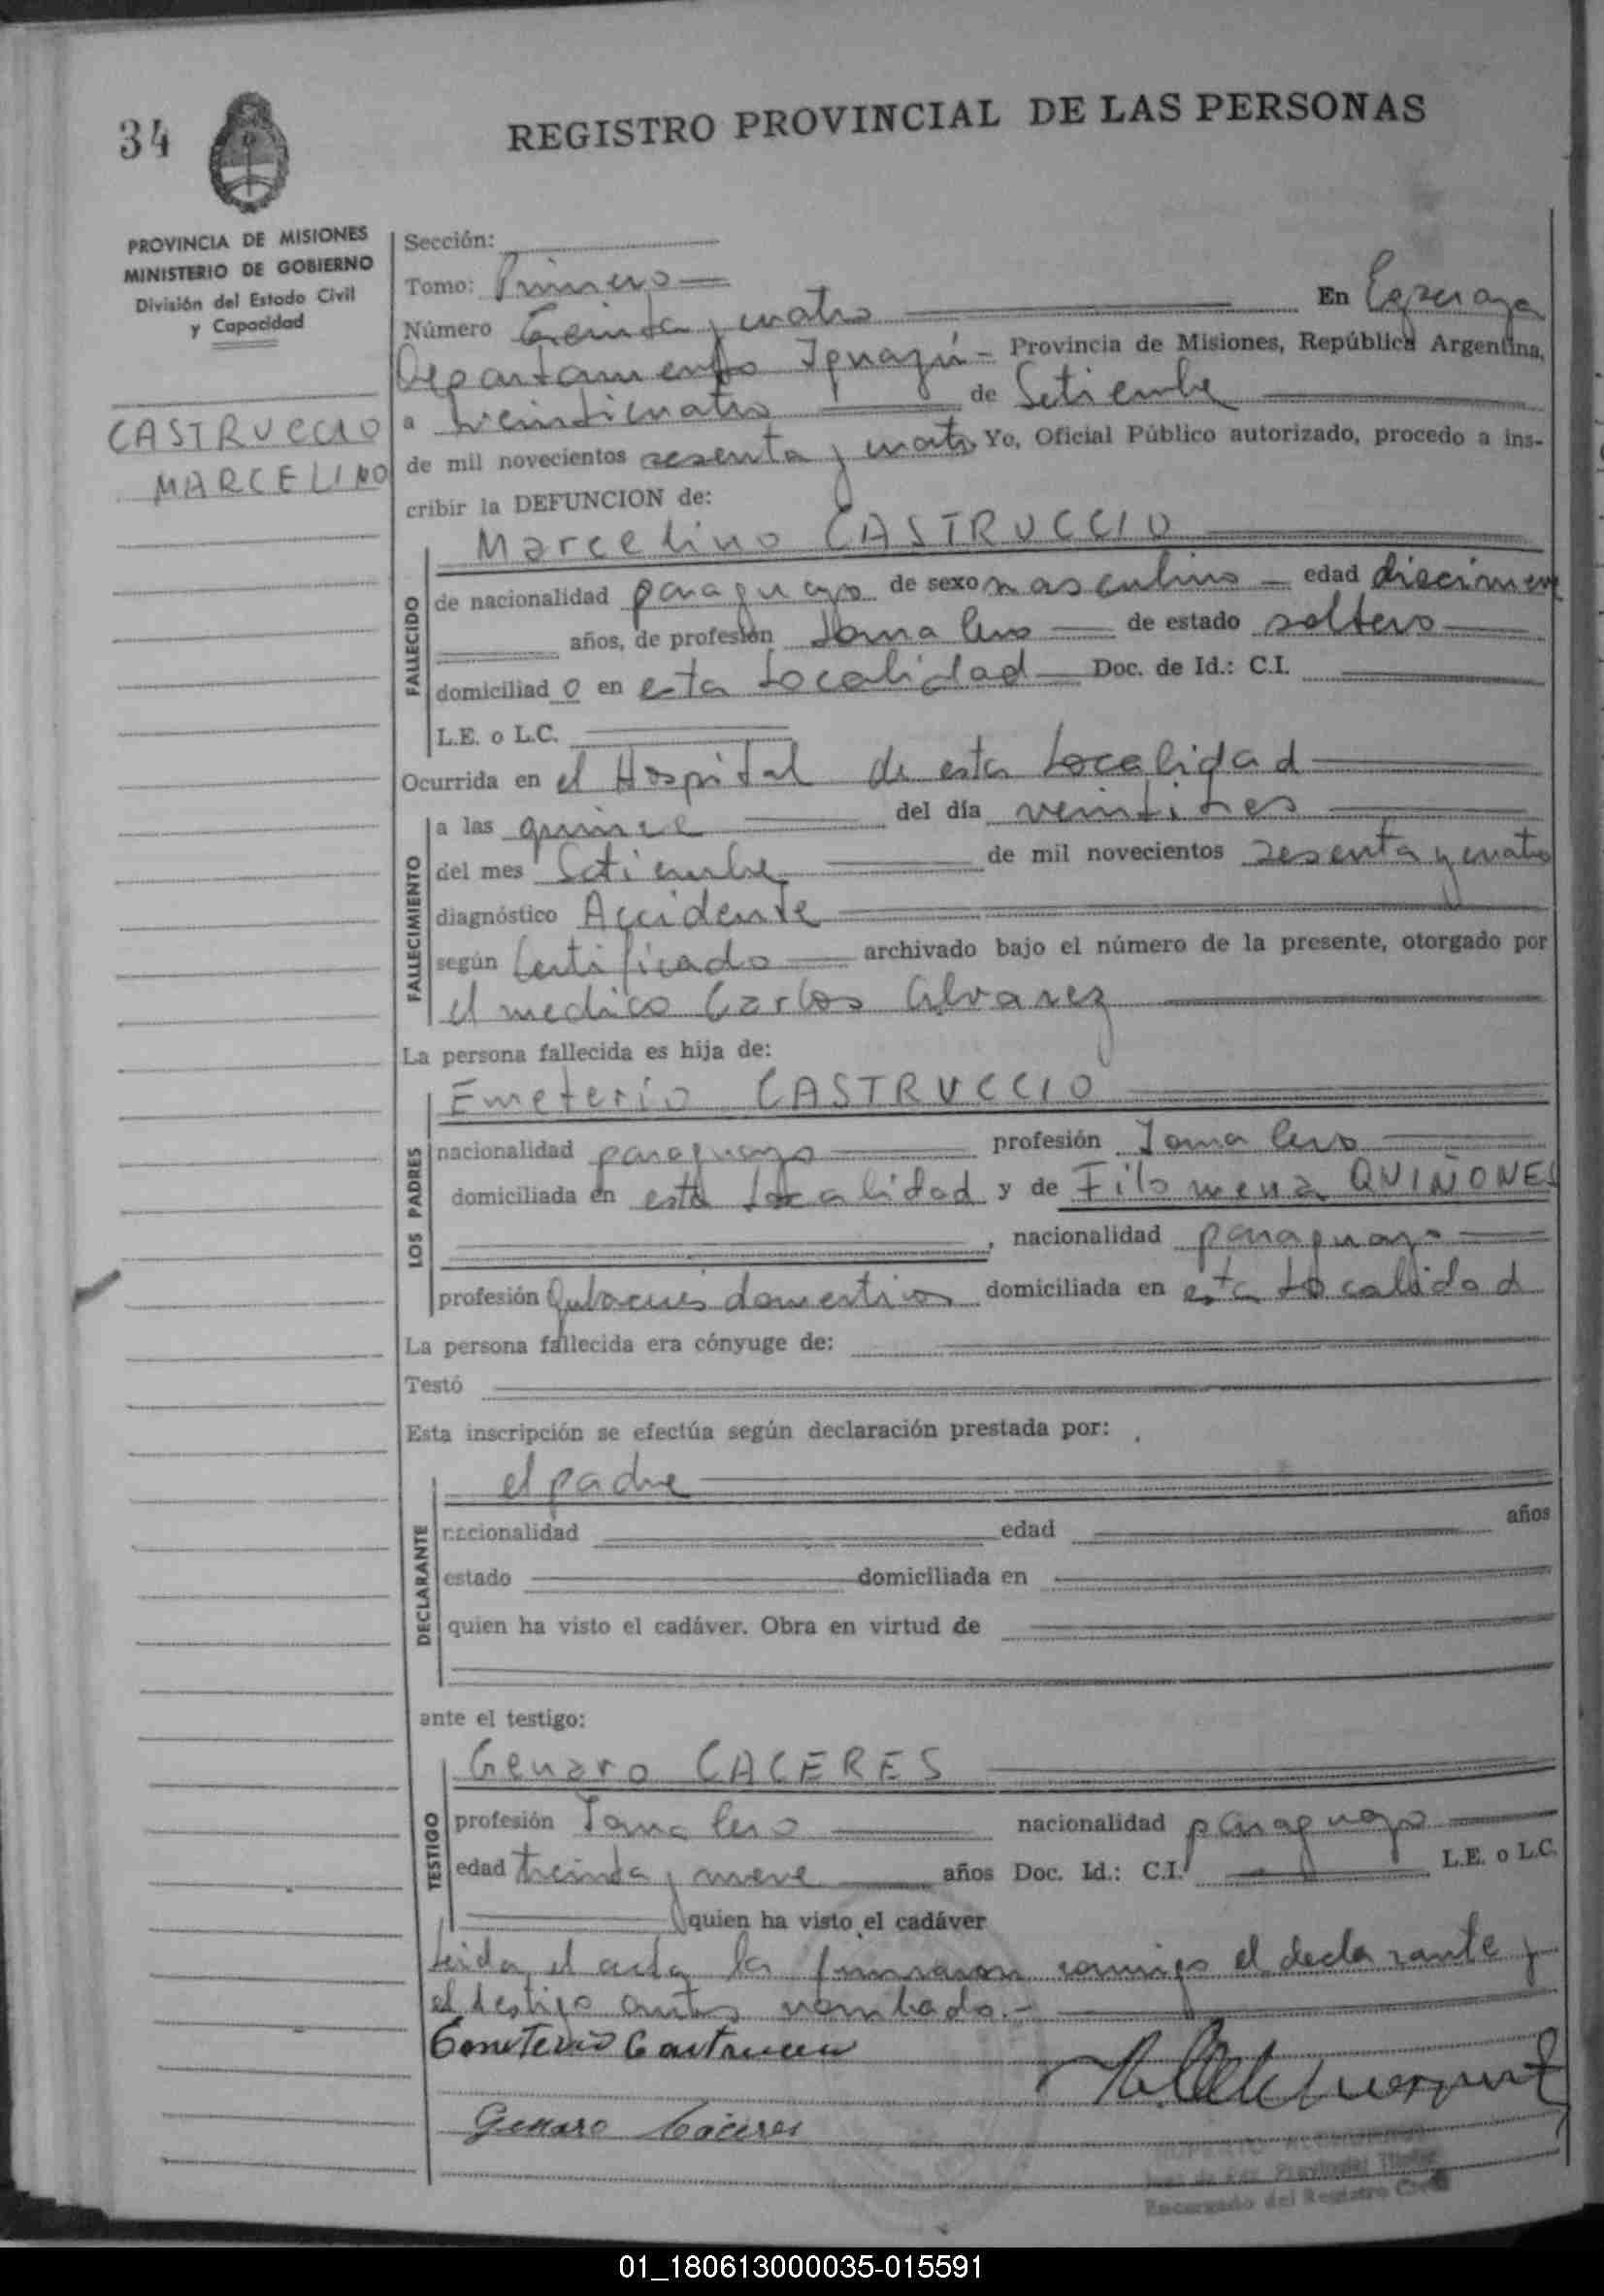 34
REGISTRO PROVINCIAL DE LAS PERSONAS
PROVINCIA DE MISIONES
MINISTERIO DE GOBIERNO
División del Estado Civil
y Capacidad
CASTRUCCIO
MARCELINO
Sección:
Tomo: Primero
Número Treinta y cuatro En Esperanza
Departamento Iguazú - Provincia de Misiones, República Argentina,
a veinticuatro de Setiembre
de mil novecientos sesenta y cuatro Yo, Oficial Público autorizado, procedo a ins-
cribir la DEFUNCION de:
Marcelino CASTRUCCIO
FALLECIDO
de nacionalidad paraguayo de sexo masculino edad diecinueve
años, de profesión Jornalero de estado soltero
domiciliado en esta Localidad Doc. de Id.: C.I.
L.E. o L.C.
Ocurrida en el Hospital de esta Localidad
FALLECIMIENTO
a las quince del día veintitres
del mes Setiembre de mil novecientos sesenta y cuatro
diagnóstico Accidente
según Certificado archivado bajo el número de la presente, otorgado por
el medico Carlos Alvarez
La persona fallecida es hija de:
Emeterio CASTRUCCIO
LOS PADRES
nacionalidad paraguayo profesión Jornalero
domiciliada en esta Localidad y de Filomena QUIÑONES
, nacionalidad paraguaya
profesión Quehaceres domesticos domiciliada en esta Localidad
La persona fallecida era cónyuge de:
Testó
Esta inscripción se efectúa según declaración prestada por:
el padre
DECLARANTE
nacionalidad edad años
estado domiciliada en
quien ha visto el cadáver. Obra en virtud de
ante el testigo:
Genaro CACERES
TESTIGO
profesión Jornalero nacionalidad paraguayo
edad treinta y nueve años Doc. Id.: C.I. L.E. o L.C.
quien ha visto el cadáver
Leida el acta la firmaron conmigo el declarante y
el testigo antes nombrado.-
Emeterio Castruccio
Genaro Cáceres
Juez de Paz Provincial Titular
Encargado del Registro Civil
01_180613000035-015591